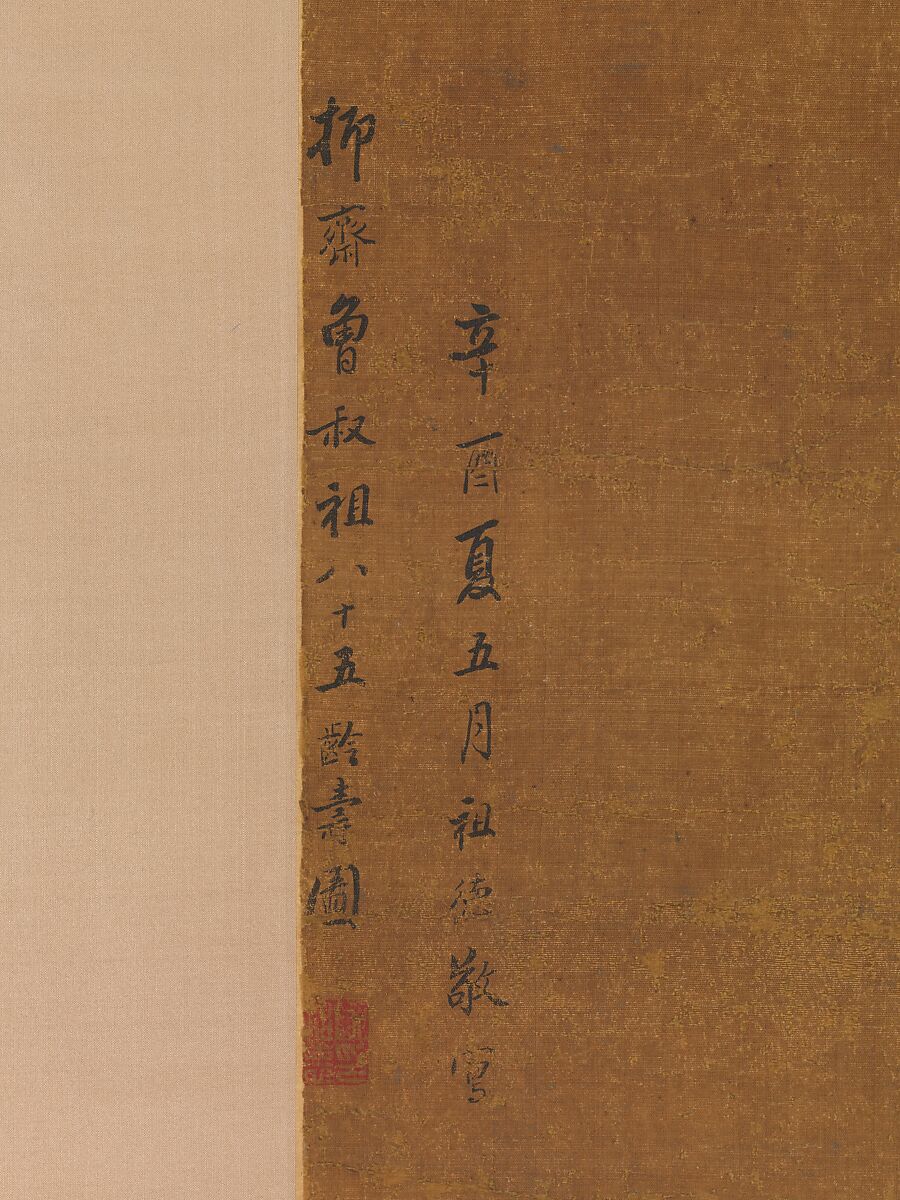 辛酉夏五月祖德敬寫
抑齋魯叔祖八十五齡壽圖